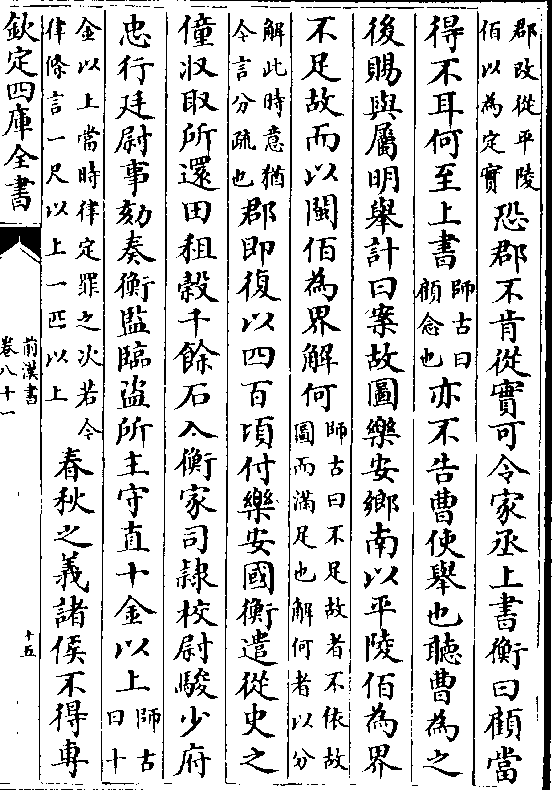 郡改從平陵
佰以為定實
恐郡不肯從實可令家丞上書衡曰顧當
得不耳何至上書
師古曰
顧念也
亦不告曹使舉也聽曹為之
後賜與屬明舉計曰案故圖樂安鄉南以平陵佰為界
不足故而以閩佰為界解何
師古曰不足故者不依故
圖而滿足也解何者以分
解此時意猶
今言分疏也
郡即復以四百頃付樂安國衡遣從史之
僮收取所還田租穀千餘石入衡家司隸校尉駿少府
忠行廷尉事劾奏衡監臨盜所主守直十金以上
師古
曰十
金以上當時律定罪之次若今
律條言一尺以上一匹以上
春秋之義諸侯不得專
欽定四庫全書
前漢書
卷八十一
十五